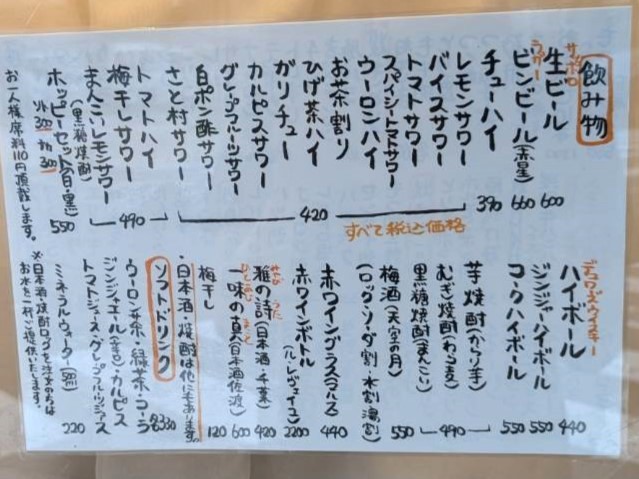 飲み物
サッポロ
生ビール 600
ラガー
ビンビール(赤星) 660
チューハイ 390
レモンサワー
バイスサワー
トマトサワー
スパイシートマトサワー
ウーロンハイ
お茶割り
ひげ茶ハイ
ガリチュー
カルピスサワー
グレープフルーツサワー
白ポン酢サワー
さと村サワー
420
トマトハイ
梅干しサワー
まんこいレモンサワー
(黒糖焼酎)
490
ホッピーセット(白・黒) 550
ソト300 ナカ300
お一人様席料110円頂戴します。
すべて税込価格
デュワーズウイスキー
ハイボール 440
ジンジャーハイボール 550
コークハイボール 550
芋焼酎(からり芋)
むぎ焼酎(わるき)
黒糖焼酎(まんこい)
490
梅酒(天空の月) 550
(ロック・ソーダ割・水割・湯割)
赤ワイングラス(マルス) 440
赤ワインボトル(ル・レヴェイユ) 2200
みやび うた
雅の詩(日本酒・千葉) 420
一味の真(日本酒佐渡) 600
梅干し 120
・日本酒・焼酎は他にもあります。
ソフトドリンク
ウーロン茶・緑茶・コーラ
ジンジャエール(辛口)・カルピス
トマトジュース・グレープフルーツジュース
各330
ミネラルウォーター 220
※日本酒・焼酎ロックをご注文の方は
お水を一杯ご提供いたします。